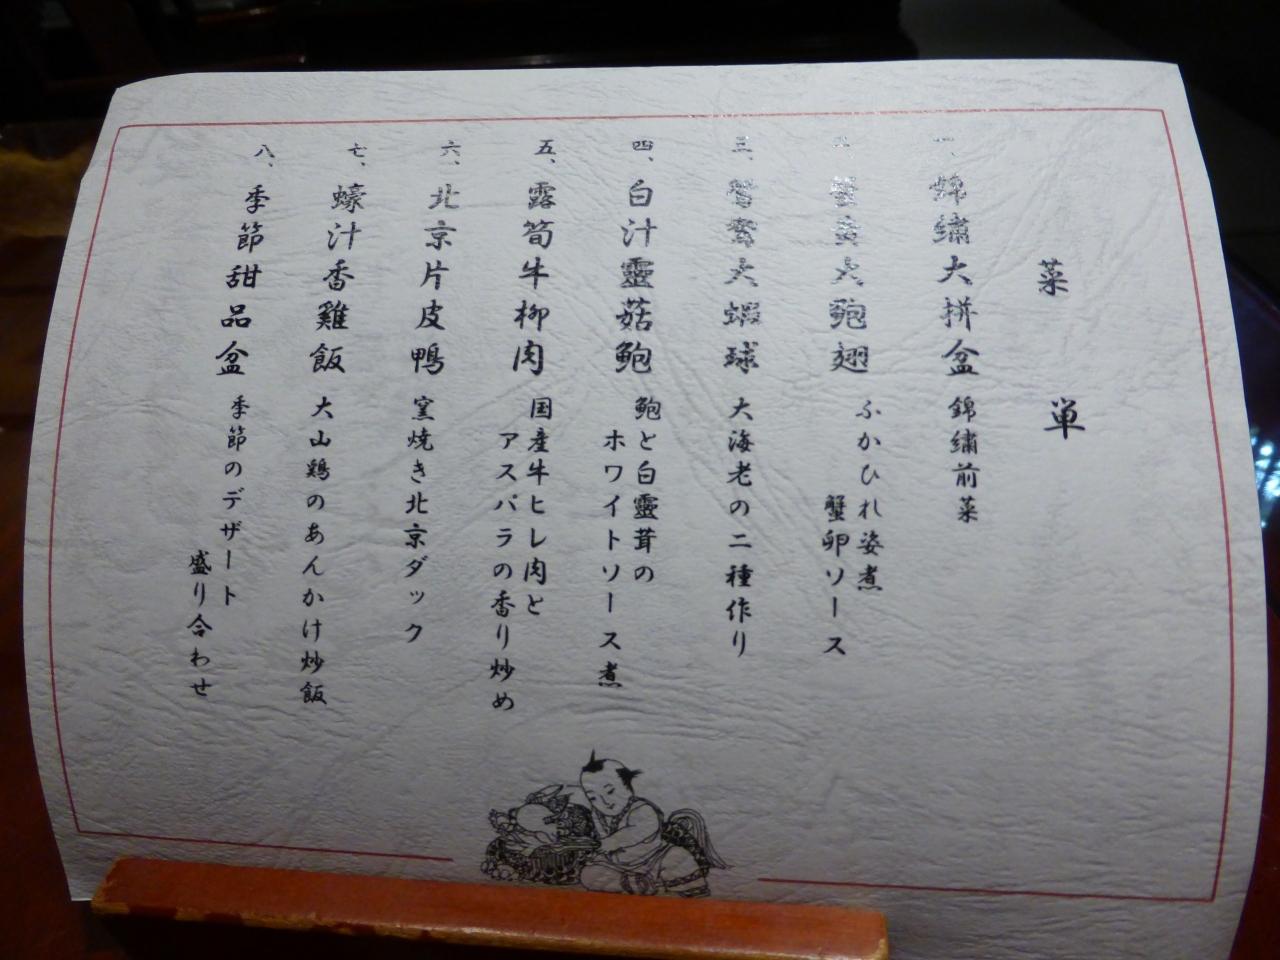 菜単
一、錦繍大拼盆 錦繍前菜
二、蟹黄大鮑翅 ふかひれ姿煮
蟹卵ソース
三、鴛鴦大蝦球 大海老の二種作り
四、白汁靈菇鮑 鮑と白靈茸の
ホワイトソース煮
五、露筍牛柳肉 国産牛ヒレ肉と
アスパラの香り炒め
六、北京片皮鴨 窯焼き北京ダック
七、蠔汁香雞飯 大山鶏のあんかけ炒飯
八、季節甜品盆 季節のデザート
盛り合わせ